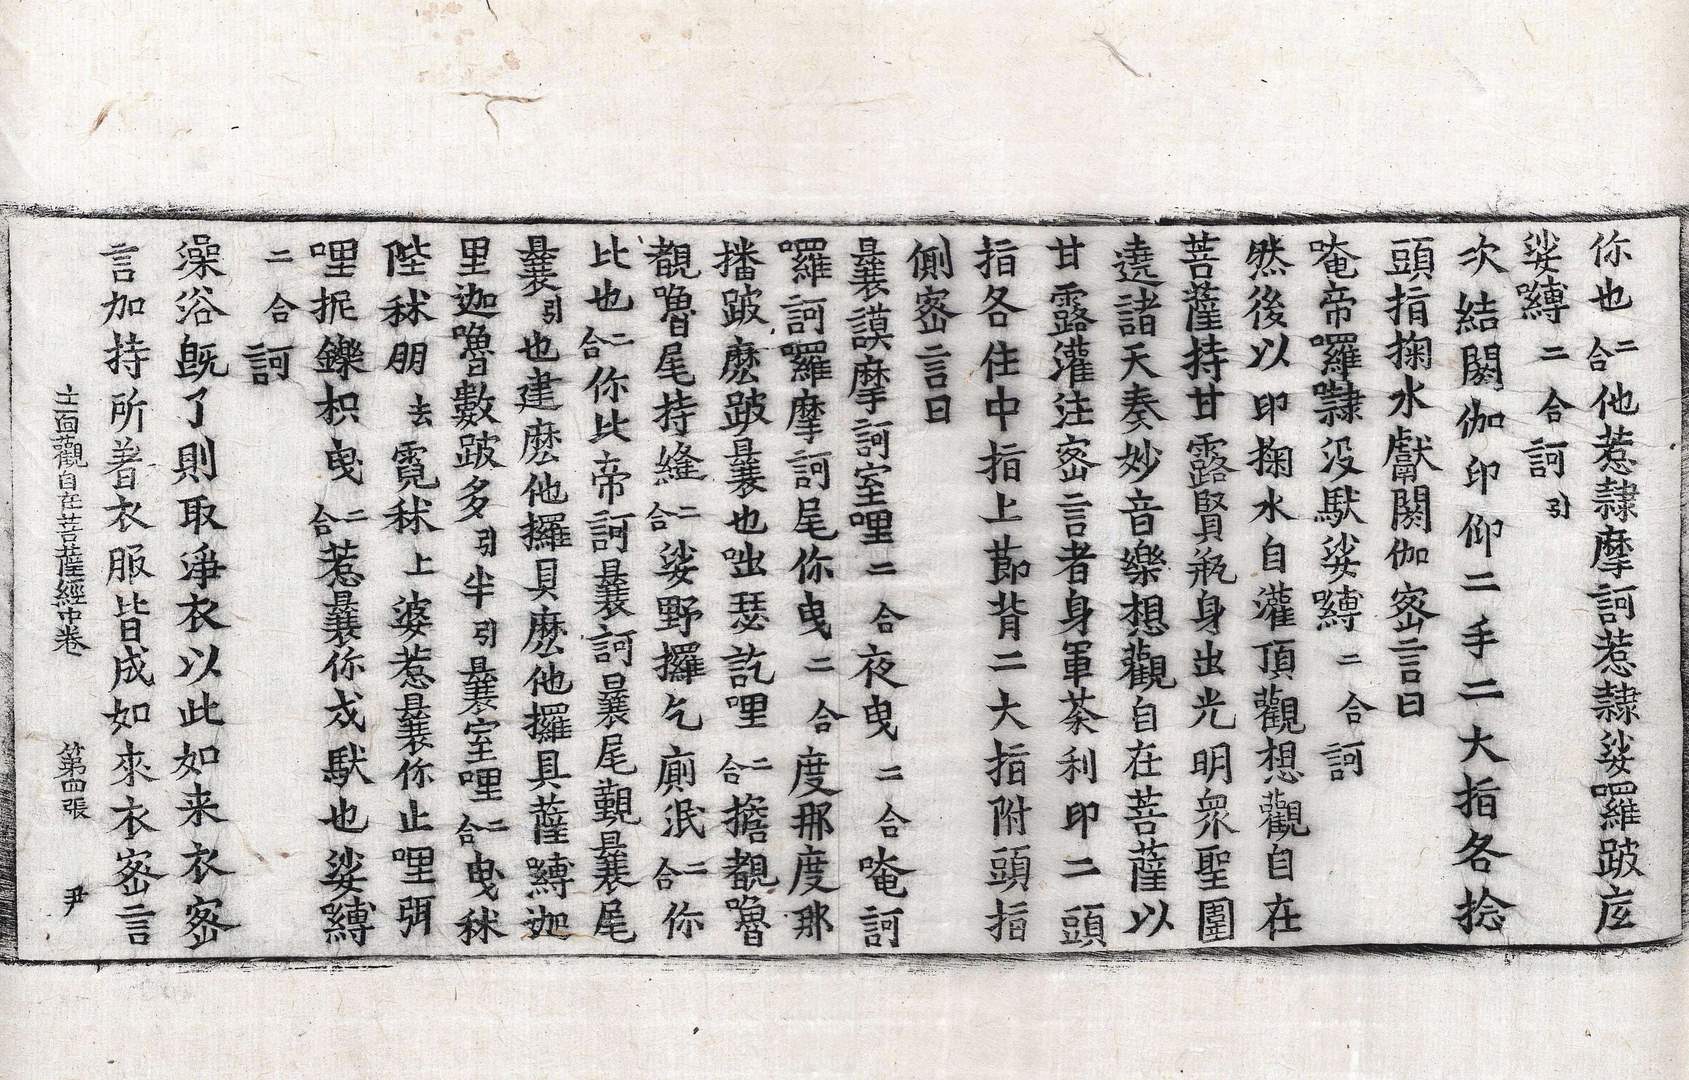 你也二合他惹隷摩訶惹隷娑囉跛底
娑嚩二合訶引
次結閼伽印仰二手二大指各捻
頭指掬水獻閼伽密言曰
唵帝囉㘑没馱娑嚩二合訶
然後以印掬水自灌頂觀想觀自在
菩薩持甘露賢瓶身出光明衆聖圍
遶諸天奏妙音樂想觀自在菩薩以
甘露灌注密言者身軍荼利印二頭
指各住中指上莭背二大指附頭指
側密言曰
曩謨摩訶室哩二合夜曳二合唵訶
囉訶囉摩訶尾你曳二合度那度那
播跛麽跛曩也咄瑟訖哩二合擔覩嚕
覩嚕尾持縫二合娑野攞乞廁泯二合你
比也二合你比帝訶曩訶曩尾覲曩尾
曩引也建麽他攞具麽他攞具薩嚩迦
里迦嚕數跛多引半引曩室哩二合曳秫
陛秫朋去霓秫上婆惹曩你止哩弭
哩抳鑠枳曳二合惹曩你戍馱也娑嚩
二合訶
澡浴旣了則取淨衣以此如来衣密
言加持所着衣服皆成如來衣密言
土面觀自在菩薩經中卷 第四張 尹